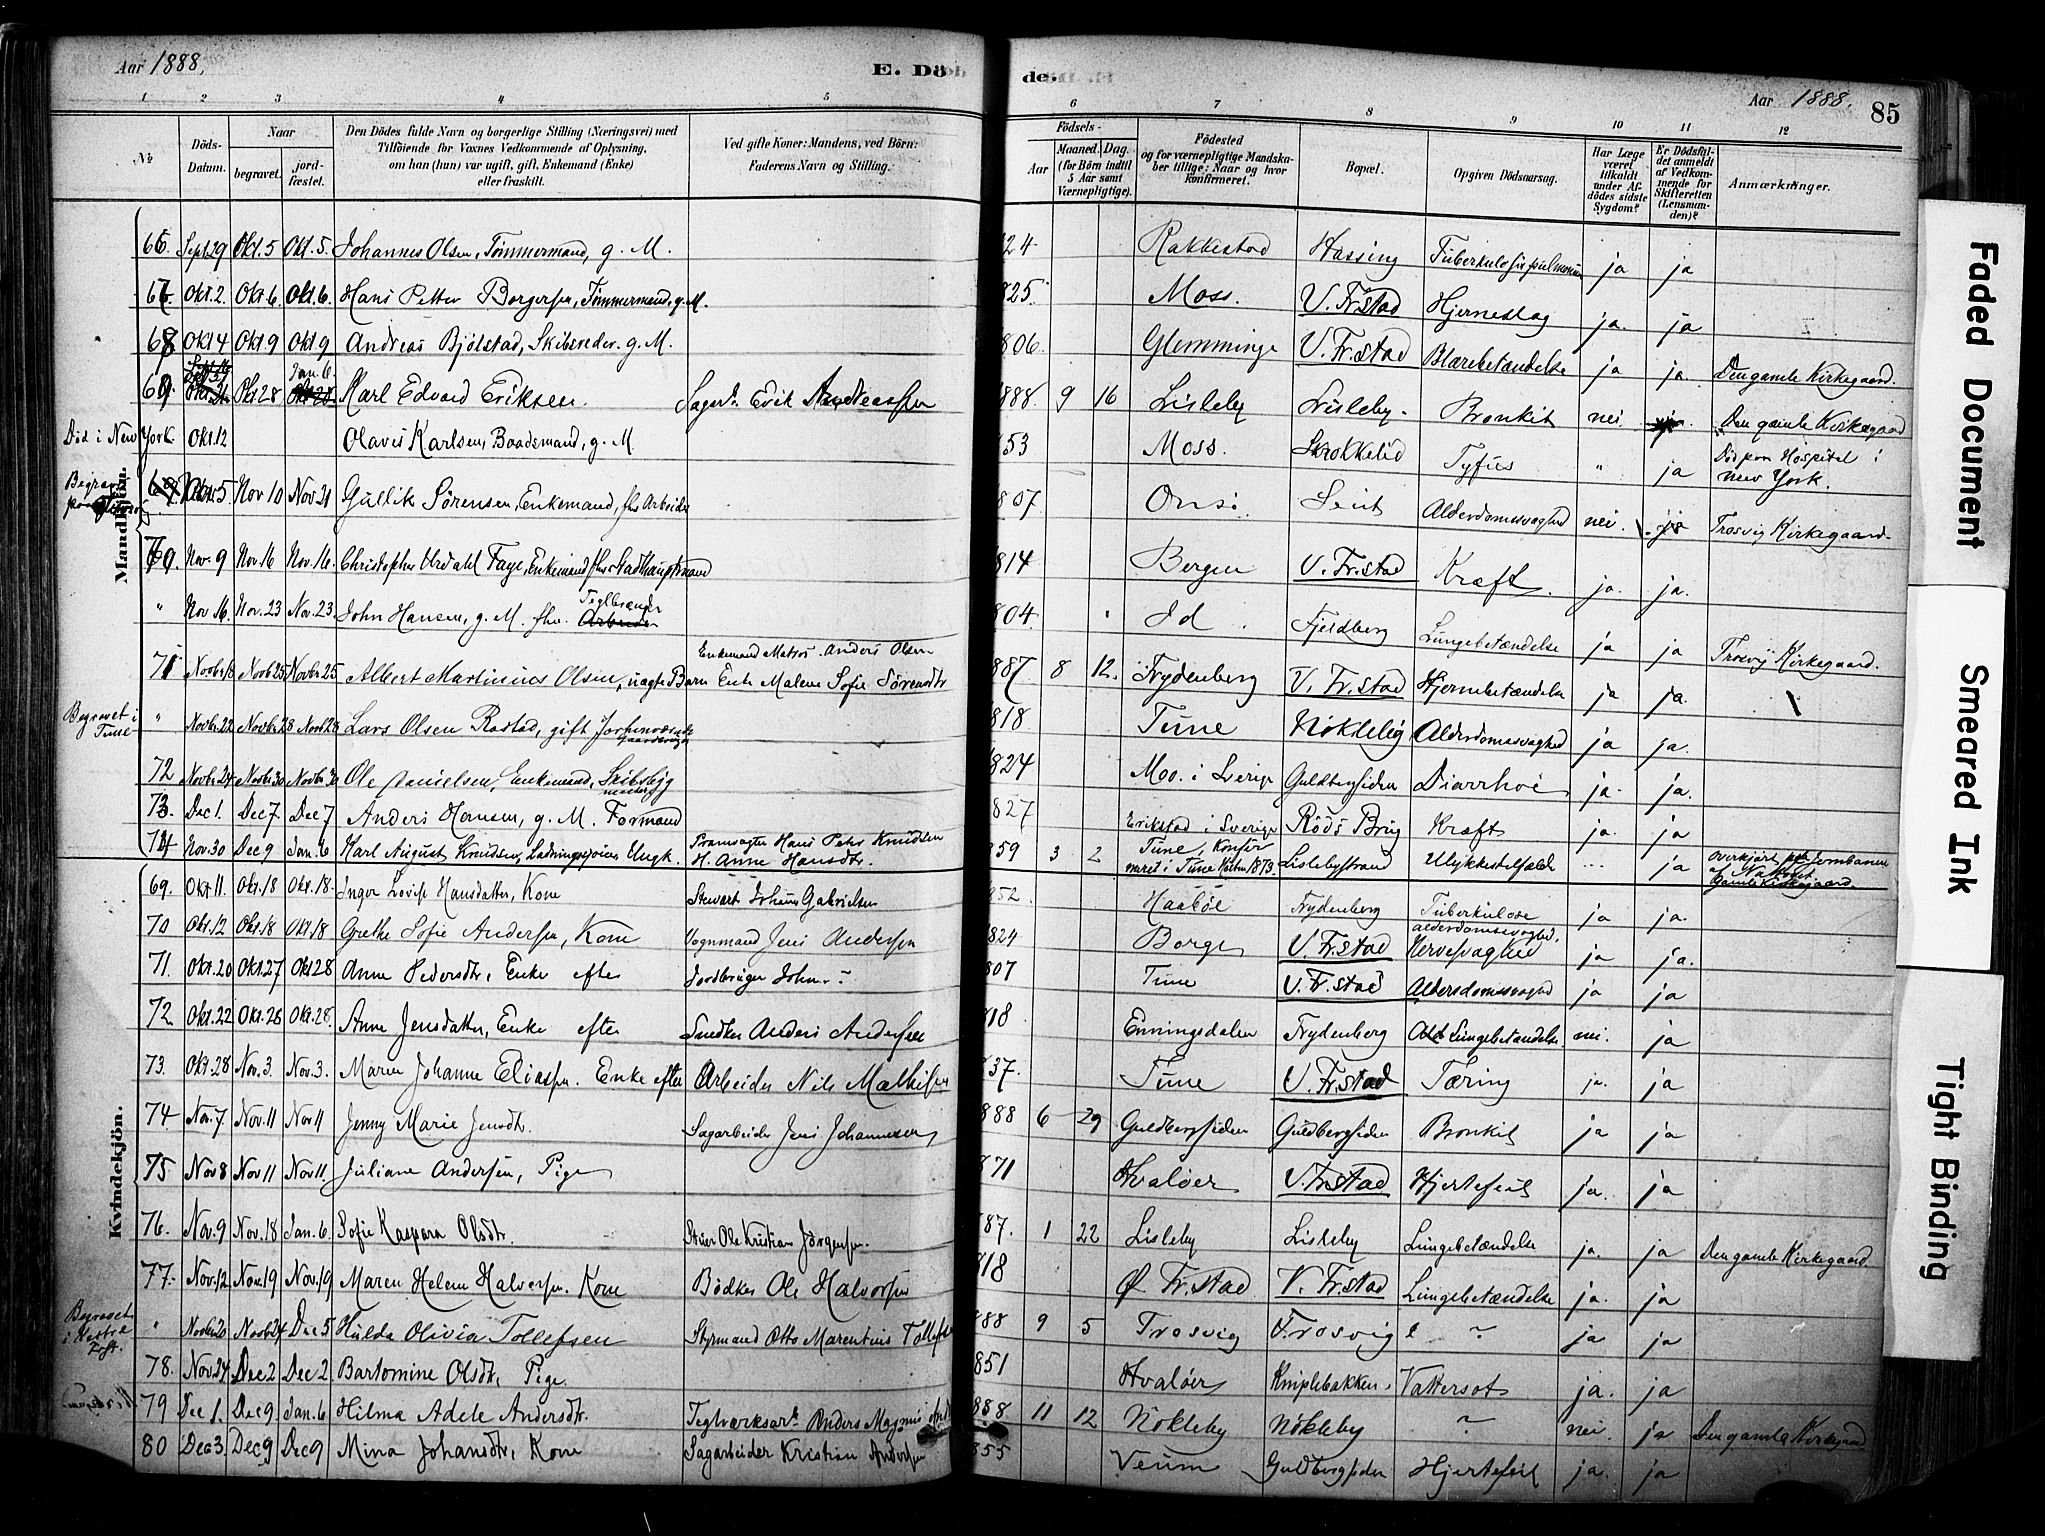 Aar 1888.
E. Dö
de.
Aar 1888.
85
1 2 3 4 5 6 7 8 9 10 11 12
№ Döds-Datum. Naar begravet. jordfæstet. Den Dödes fulde Navn og borgerlige Stilling (Næringsvei) med Tilföiende for Voxnes Vedkommende af Oplysning, om han (hun) var ugift, gift, Enkemand (Enke) eller fraskilt. Ved gifte Koner: Mandens, ved Börn: Faderens Navn og Stilling. Födsels- Aar Maaned. Dag. (for Börn indtil 5 Aar samt Værnepligtige). Födested og for værnepligtige Mandskaber tillige: Naar og hvor konfirmeret. Bopæl. Opgiven Dödsaarsag. Har Læge været tilkaldt under Afdödes sidste Sygdom? Er Dödsfaldet anmeldt af Vedkommende for Skifteretten (Lensmanden)? Anmærkninger.
Mandkjön.
66 Sept.29 Okt.5 Okt.5. Johannes Olsen, Tømmermand, g. M. 24. Rakkestad Hassing Tuberkulosis pulmonum ja ja
67 Okt.2. Okt.6. Okt.6. Hans Petter Borgersen, Tømmermand, g. M. 825. Moss. V. Fr.stad Hjerneslag ja. ja
68 Okt.4 Okt.9 Okt.9 Andreas Bjølstad, Skibsreder. g. M. 806. Glemminge V. Fr.stad Blærebetændelse ja ja. Den gamle Kirkegaard.
69. Okt.28 Jan.6. Karl Edvard Eriksen. Sagarb. Erik Andreassen 888. 9 16 Lisleby Lisleby. Bronkit nei. ja. Den gamle Kirkegaard
Død i New York. Okt.12 Olavis Karlsen, Baadsmand, g. M. 53 Moss. Skrokkelid Tyfus " ja Død paa Hospital i New York.
Nov.5. Nov 10 Nov 21 Gullik Sørensen, Enkemand, fhv. Arbeider 807 Onsø. Alderdomssvaghed nei. ja Trosvig Kirkegaard.
70. Nov.9 Nov.16 Nov.16. Christopher Urdahl Faye, Enkemand, fhv. Stadthauptmand 814 Bergen V. Fr.stad Kræft. ja. ja.
" Nov 16. Nov.23 Nov.23. John Hansen, g. M. fhv. Teglbrænder 804. Id Fjeldberg Lungebetændelse ja ja Trosvig Kirkegaard.
71 Novbr.18 Novbr.25 Novbr.25 Albert Martinius Olsen, uægte Barn Enkemand Matros Anders Olsen Enke Malene Sofie Sørensdtr 887 8 12. Frydenberg V. Fr.stad Hjernebetændelse ja ja.
Begravet i Tune " Novbr.22 Novbr.28 Novbr.28 Lars Olsen Rostad, gift 818 Tune Nökleby Alderdomssvaghed ja ja.
72 Novbr.24 Novbr.30 Novbr.30 Ole Danielsen, Enkemand, Skibsbygmester 824 Mo i Sverige Guldbergsiden Diarrhoe ja. ja.
73. Dec 1. Dec 7. Dec 7 Anders Hansen, g. M. Formand 827 Erikstad i Sverige Røds Brug Kræft ja. ja
74 Nov.30 Dec 9 Jan.6 Karl August Knudsen, Ladningsskriver, Ungk. Pramvagter Hans Peter Knudsen H. Anne Hansdtr. 859 3 2 Tune, Konfirmeret i Tune 1873. Lislebystrand Ulykkestilfælde ja Overkjørt paa Jernbanen Gamle Kirkegaard.
Kvindekjön.
69. Okt.11. Okt.18 Okt.18. Inger Lovise Hansdatter, Kone Stewart Johans Gabrielsen 852. Haabøl Frydenberg Tuberkulose ja ja.
70 Okt.12 Okt.18 Okt.18 Grethe Sofie Andersen, Kone Vognmand Jens Andersen 824 Borge V. Fr.stad Alderdomssvaghed, Nervesvaghed ja ja.
71. Okt.20 Okt.27 Okt.28 Anne Pedersdtr, Enke efter Jordbruger John - ? 807 Tune V. Fr.stad Alderdomssvaghed ja ja
72. Okt.22 Okt.28 Okt.28. Anne Jensdatter, Enke efter Snedker Anders Andersen 818 Enningsdalen Frydenberg Lungebetændelse nei. ja
73. Okt.28 Nov.3. Nov.3. Maren Johanne Eliassen. Enke efter Arbeider Nils Mathisen 837. Tune V. Fr.stad Tæring ja. ja
74 Nov.7 Nov.11 Nov 11 Jenny Marie Jensdtr. Sagarbeider Jens Johannesen 888 6 29 Guldbergsiden Guldbergsiden Bronkit ja ja
75 Nov 8 Nov 11 Nov 11. Juliane Andersen, Pige 871 Hvaløer V. Fr.stad Hjertefeil ja. ja
76. Nov.9 Nov.18 Jan.6 Sofie Kaspara Olsdtr. Stuer Ole Kristian Jørgensen. 887. 1 22 Lisleby Lisleby Lungebetændelse ja. ja Den gamle Kirkegaard
77. Nov.12 Nov.19 Nov.19 Maren Helene Halvorsen. Kone Bødker Ole Halvorsen 818 Ø. Fr.stad V. Fr.stad Lungebetændelse ja. ja
Begravet " Novbr.20 Novbr.24 Dec 5 Hulda Olivia Tollefsen Styrmand Otto Marentius Tollefsen 888 9 5 Trosvig Trosvig ? ja ja
78. Nov.24 Dec 2 Dec 2 Bartomine Olsdtr, Pige. 851 Hvaløer Kniplebakken. Vattersot ja. ja
79 Dec 1. Dec 9 Jan.6 Hilma Adele Andersdtr. Teglværksarb. Anders Magnus 888 11 12 Nökleby Nökleby ? nei ja Den gamle Kirkegaard
80 Dec 3. Dec 9 Dec 9 Mina Johansdtr, Kone Sagarbeider Kristian Andersen 855 Veum Guldbergsiden Hjertefeil ja. ja
Faded Document
Smeared Ink
Tight Binding